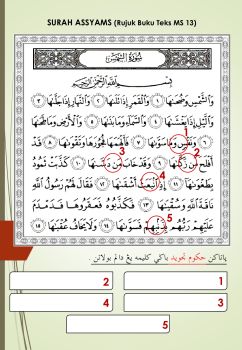 SURAH ASSYAMS (Rujuk Buku Teks MS 13)
سورة الشمس
بسم الله الرحمن الرحيم
والشمس وضحىها ١ والقمر إذا تلىها ٢ والنهار إذا جلىها ٣
واليل إذا يغشىها ٤ والسماء وما بنىها ٥ والأرض وما طحىها
٦ ونفس وما سوىها ٧ فألهمها فجورها وتقوىها ٨ قد
أفلح من زكىها ٩ وقد خاب من دسىها ١٠ كذبت ثمود
بطغوىها ١١ إذ انبعث أشقىها ١٢ فقال لهم رسول الله
ناقة الله وسقيىها ١٣ فكذبوه فعقروها فدمدم
عليهم ربهم بذنبهم فسوىها ١٤ ولا يخاف عقبىها ١٥
1
2
3
4
5
ياتاكن حكوم تجويد باݢي كليمه يڠ دالم بولاتن
2
1
4
3
5